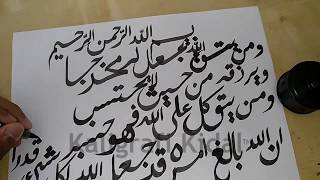 بسم الله الرحمن الرحيم
ومن يتق الله يجعل له مخرجا
ويرزقه من حيث لا يحتسب
ومن يتوكل على الله فهو حسبه
ان الله بالغ امره قد جعل الله لكل شيء قدرا
Kaligrafi Kidal